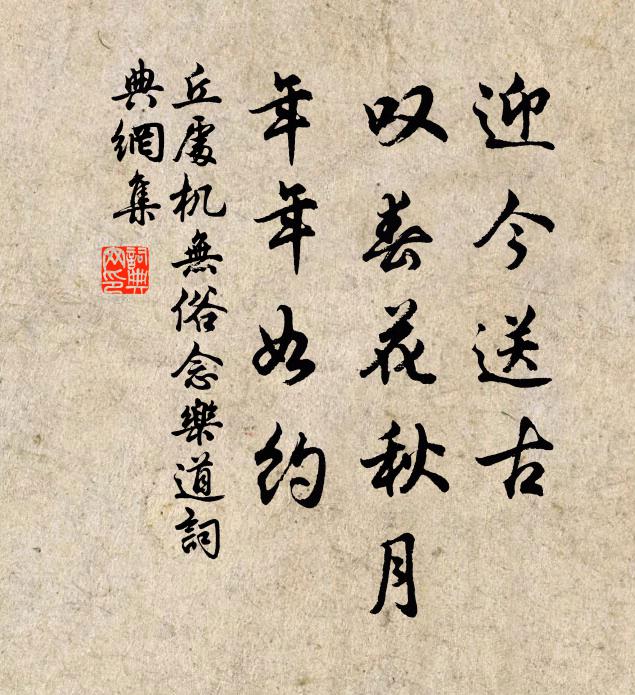 迎今送古
叹春花秋月
年年如约
丘處机無俗念樂道詞
典網集
詞典
网印